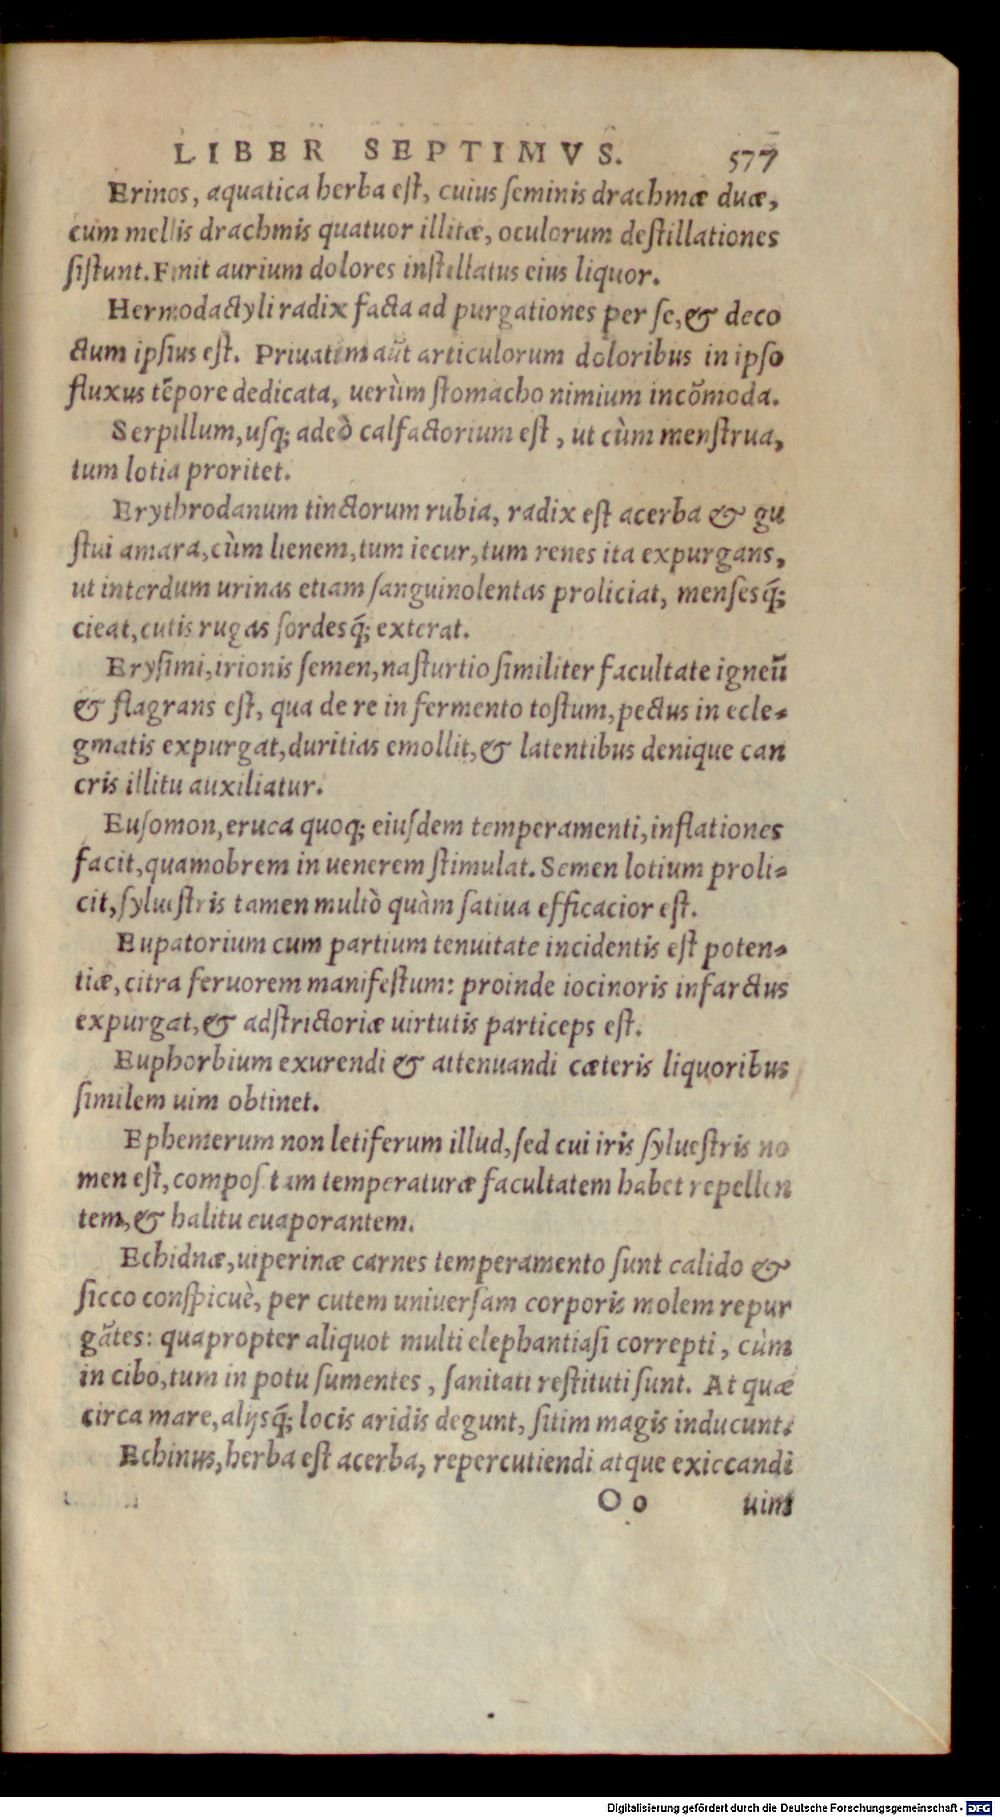 LIBER SEPTIMVS. 577
Erinos, aquatica herba eſt, cuius ſeminis drachmæ duæ,
cum mellis drachmis quatuor illitæ, oculorum deſtillationes
ſiſtunt. Finit aurium dolores inſtillatus eius liquor.
Hermodactyli radix facta ad purgationes per ſe, & deco
ctum ipſius eſt. Priuatim aũt articulorum doloribus in ipſo
fluxus tẽpore dedicata, uerùm ſtomacho nimium incõmoda.
Serpillum, uſq; adeò calfactorium eſt, ut cùm menſtrua,
tum lotia proritet.
Erythrodanum tinctorum rubia, radix eſt acerba & gu
ſtui amara, cùm lienem, tum iecur, tum renes ita expurgans,
ut interdum urinas etiam ſanguinolentas proliciat, menſesq́;
cieat, cutis rugas ſordesq́; exterat.
Eryſimi, irionis ſemen, naſturtio ſimiliter facultate igneũ
& flagrans eſt, qua de re in fermento toſtum, pectus in ecle-
gmatis expurgat, duritias emollit, & latentibus denique can
cris illitu auxiliatur.
Euſomon, eruca quoq; eiuſdem temperamenti, inflationes
facit, quamobrem in uenerem ſtimulat. Semen lotium proli-
cit, ſylueſtris tamen multò quàm ſatiua efficacior eſt.
Eupatorium cum partium tenuitate incidentis eſt poten-
tiæ, citra feruorem manifeſtum: proinde iocinoris infarctus
expurgat, & adſtrictoriæ uirtutis particeps eſt.
Euphorbium exurendi & attenuandi cæteris liquoribus
ſimilem uim obtinet.
Ephemerum non letiferum illud, ſed cui iris ſylueſtris no
men eſt, compoſitam temperaturæ facultatem habet repellen
tem, & halitu euaporantem.
Echidnæ, uiperinæ carnes temperamento ſunt calido &
ſicco conſpicuè, per cutem uniuerſam corporis molem repur
gãtes: quapropter aliquot multi elephantiaſi correpti, cùm
in cibo, tum in potu ſumentes, ſanitati reſtituti ſunt. At quæ
circa mare, alijsq́; locis aridis degunt, ſitim magis inducunt.
Echinus, herba eſt acerba, repercutiendi atque exiccandi
O o uim
Digitalisierung gefördert durch die Deutsche Forschungsgemeinschaft - DFG